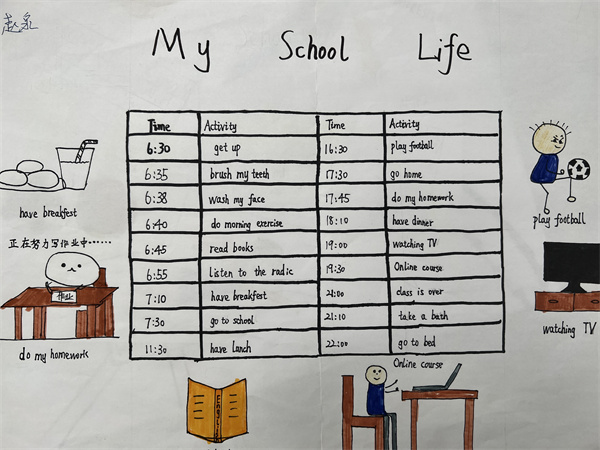 My School Life
Time Activity Time Activity
6:30 get up 16:30 play football
6:35 brush my teeth 17:30 go home
6:38 wash my face 17:45 do my homework
6:40 do morning exercise 18:10 have dinner
6:45 read books 19:00 watching TV
6:55 listen to the radic 19:30 Online course
7:10 have breakfest 21:00 class is over
7:30 go to school 21:10 take a bath
11:30 have lunch 22:00 go to bed
have breakfest
正在努力写作业中……
作业
do my homework
play football
watching TV
English
Online course